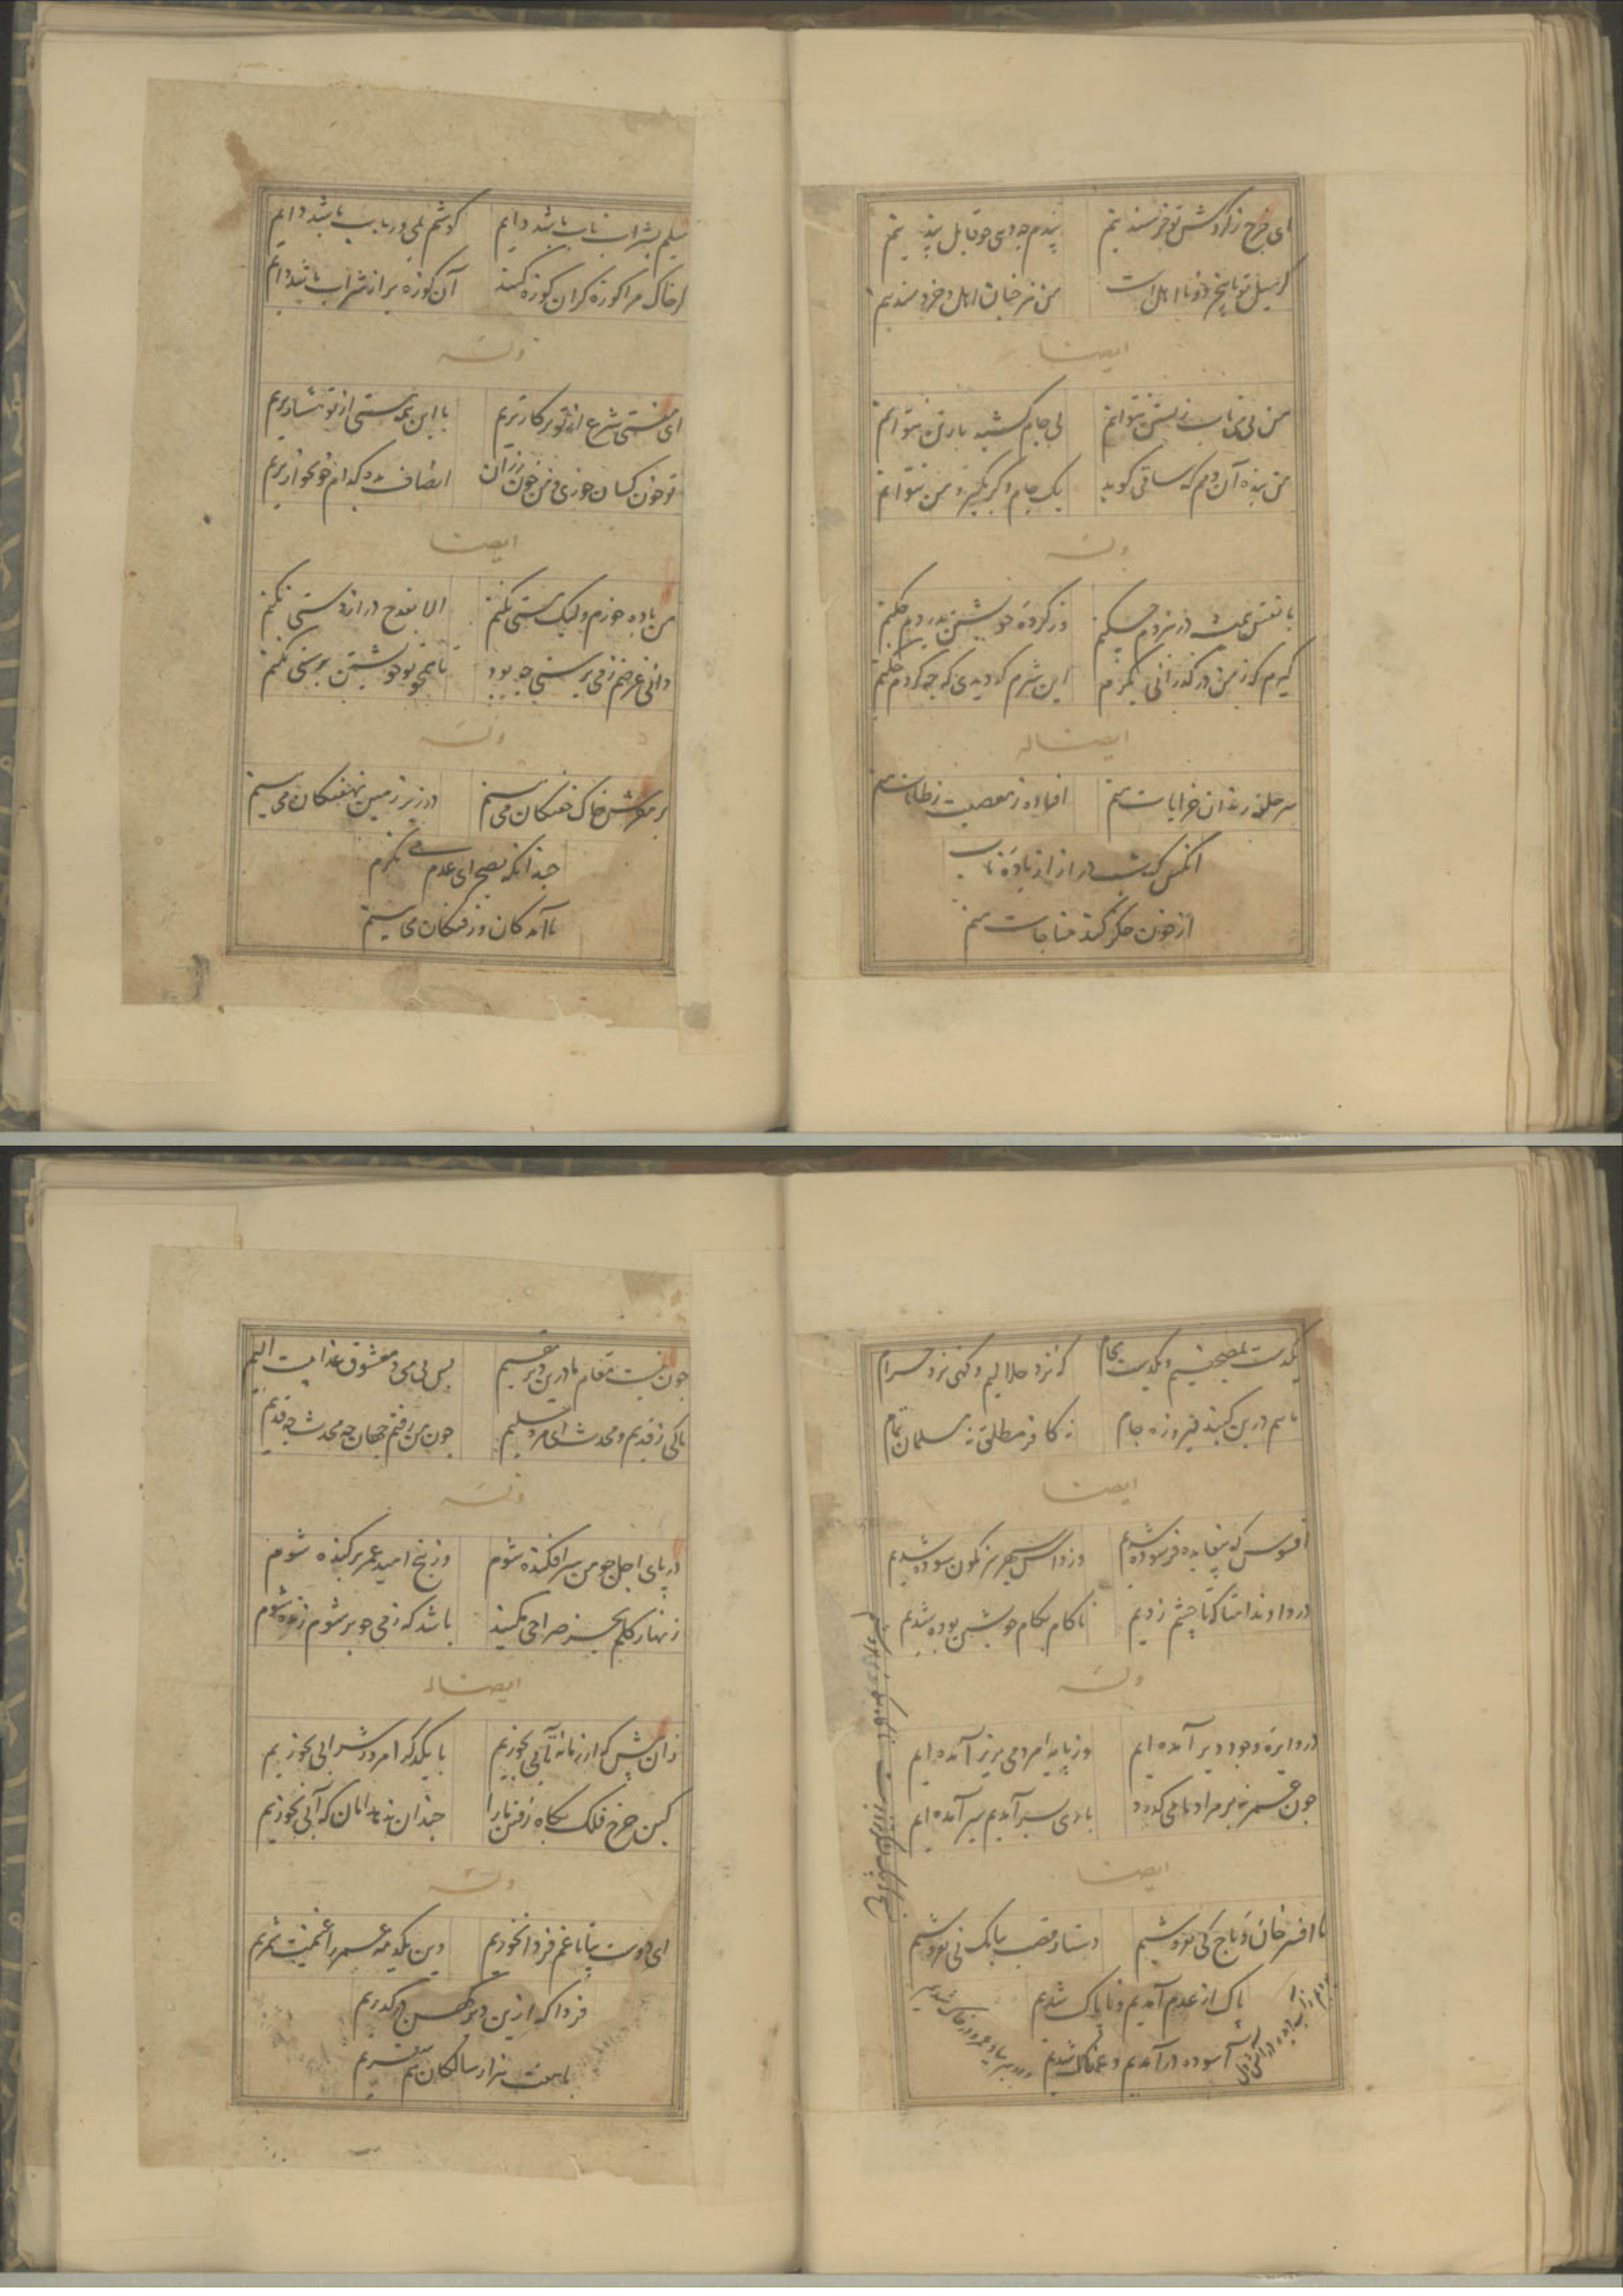 ای چرخ ز گردش تو خرسند نیم
پندم چه دهی چو قابل پند نیم
گر میل تو با بیخرد و نا اهل است
من نیز چنان اهل و خردمند نیم
ایضا
من بی می ناب زیستن نتوانم
بی جام کشید بار تن نتوانم
من بنده آن دمم که ساقی گوید
یک جام دگر بگیر و من نتوانم
وله
با نفس همیشه در نبردم چکنم
وز کرده خویشتن بدردم چکنم
گیرم که ز من در گذرانی بکرم
این شرم که دیدی که چه کردم چکنم
ایضا له
سر حلقه رندان خرابات منم
افتاده ز معصیت ز طاعات منم
آنکس که شب دراز از باده ناب
از خون جگر کند مناجات منم
میلم بشراب ناب باشد دایم
گوشم بنی و رباب باشد دایم
گر خاک مرا کوزه گران کوزه کنند
آن کوزه پر از شراب باشد دایم
وله
ای مفتی شرع از تو پر کارتریم
با این همه مستی از تو هشیارتریم
تو خون کسان خوری و من خون رزان
انصاف بده کدام خونخوارتریم
ایضا
من باده خورم ولیک مستی نکنم
الا بقدح دراز دستی نکنم
دانی غرضم ز می پرستی چه بود
تا همچو تو خویشتن پرستی نکنم
وله
بر مفرش خاک خفتگان می بینم
در زیر زمین نهفتگان می بینم
چندانکه بصحرای عدم می نگرم
نا آمدگان و رفتگان می بینم
یکدست بمصحفیم و یکدست بجام
گه نزد حلالیم و گهی نزد حرام
مائیم درین گنبد فیروزه جام
نه کافر مطلق نه مسلمان تمام
ایضا
افسوس که بیفایده فرسوده شدیم
وز داس سپهر سرنگون سوده شدیم
دردا و ندامتا که تا چشم زدیم
نا کام بکام خویش نبوده شدیم
وله
در دایره وجود دیر آمده ایم
وز پایه مردمی بزیر آمده ایم
چون عمر نه بر مراد ما می گذرد
باری بسر آمدیم سیر آمده ایم
ایضا
ما افسر خان و تاج کی بفروشیم
دستار قصب ببانک نی بفروشیم
پاک از عدم آمدیم و ناپاک شدیم
آسوده در آمدیم و غمناک شدیم
چون نیست مقام ما درین دیر مقیم
پس بی می و معشوق عذابیست الیم
تا کی ز قدیم و محدث ای مرد سلیم
چون من رفتم جهان چه محدث چه قدیم
وله
در پای اجل چو من سر افکنده شوم
وز بیخ امید عمر بر کنده شوم
زنهار گلم بجز صراحی مکنید
باشد که ز می چو پر شوم زنده شوم
ایضا له
زان پیش که از زمانه تابی بخوریم
با یکدگر امروز شرابی بخوریم
کین چرخ فلک بگاه رفتن ما را
چندان ندهد امان که آبی بخوریم
وله
ای دوست بیا تا غم فردا نخوریم
وین یکدمه عمر را غنیمت شمریم
فردا که ازین دیر کهن درگذریم
با هفت هزار سالگان سفریم